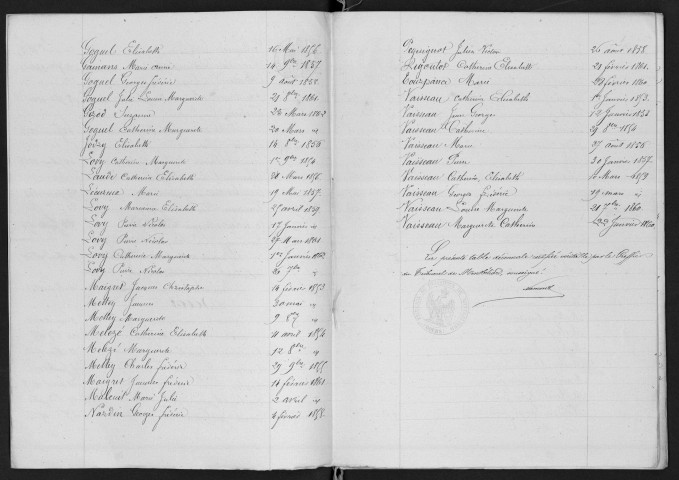 Goguel Elisabeth 16 Mai 1856
Marie 14 9bre 1857
Goguel Georges Fréderic 9 août 1852
Goguel Julie Louise Marguerite 21 8bre 1861
Suzanne 23 Mars 1862
Goguel Catherine Marguerite 20 Mars id
Elisabeth 14 8bre 1856
Lovy Catherine Marguerite 1er 9bre 1854
Claude Catherine Elisabeth 21 Mars 1856
Marie 19 Mai 1857
Lovy Marianne Elisabeth 27 avril 1859
Lovy Pierre Nicolas 17 Janvier id
Lovy Pierre Nicolas 27 Mars 1861
Lovy Catherine Marguerite 1er Janvier 1862
Lovy Pierre Nicolas
Maigret Jacques Christophe 14 février 1853
Mettey 2 mai id
Mettey Marguerite 9 8bre id
Catherine Elisabeth 11 avril 1854
Marguerite 12 8bre id
Mettey Charles Fréderic 29 9bre 1855
Maigret Fréderic 14 février 1861
Marie Julie 2 avril id
Nardin Georges Fréderic 2 février 1858
Pequignot Julien 26 août 1858
Catherine Elisabeth 21 février 1861
Marie février 1860
Vaisseau Catherine Elisabeth 1er Janvier 1853
Vaisseau Jean Georges 12 Janvier 1854
Vaisseau Catherine 29 8bre 1854
Vaisseau Marie 27 août 1856
Vaisseau Pierre 30 Janvier 1857
Vaisseau Catherine Elisabeth Mars 1859
Vaisseau Georges Fréderic 19 mars id
Vaisseau Louise Marguerite 21 7bre 1860
Vaisseau Marguerite Catherine Janvier 1860
La présente table décennale certifiée par le Greffier
du Tribunal de Montbéliard soussigné